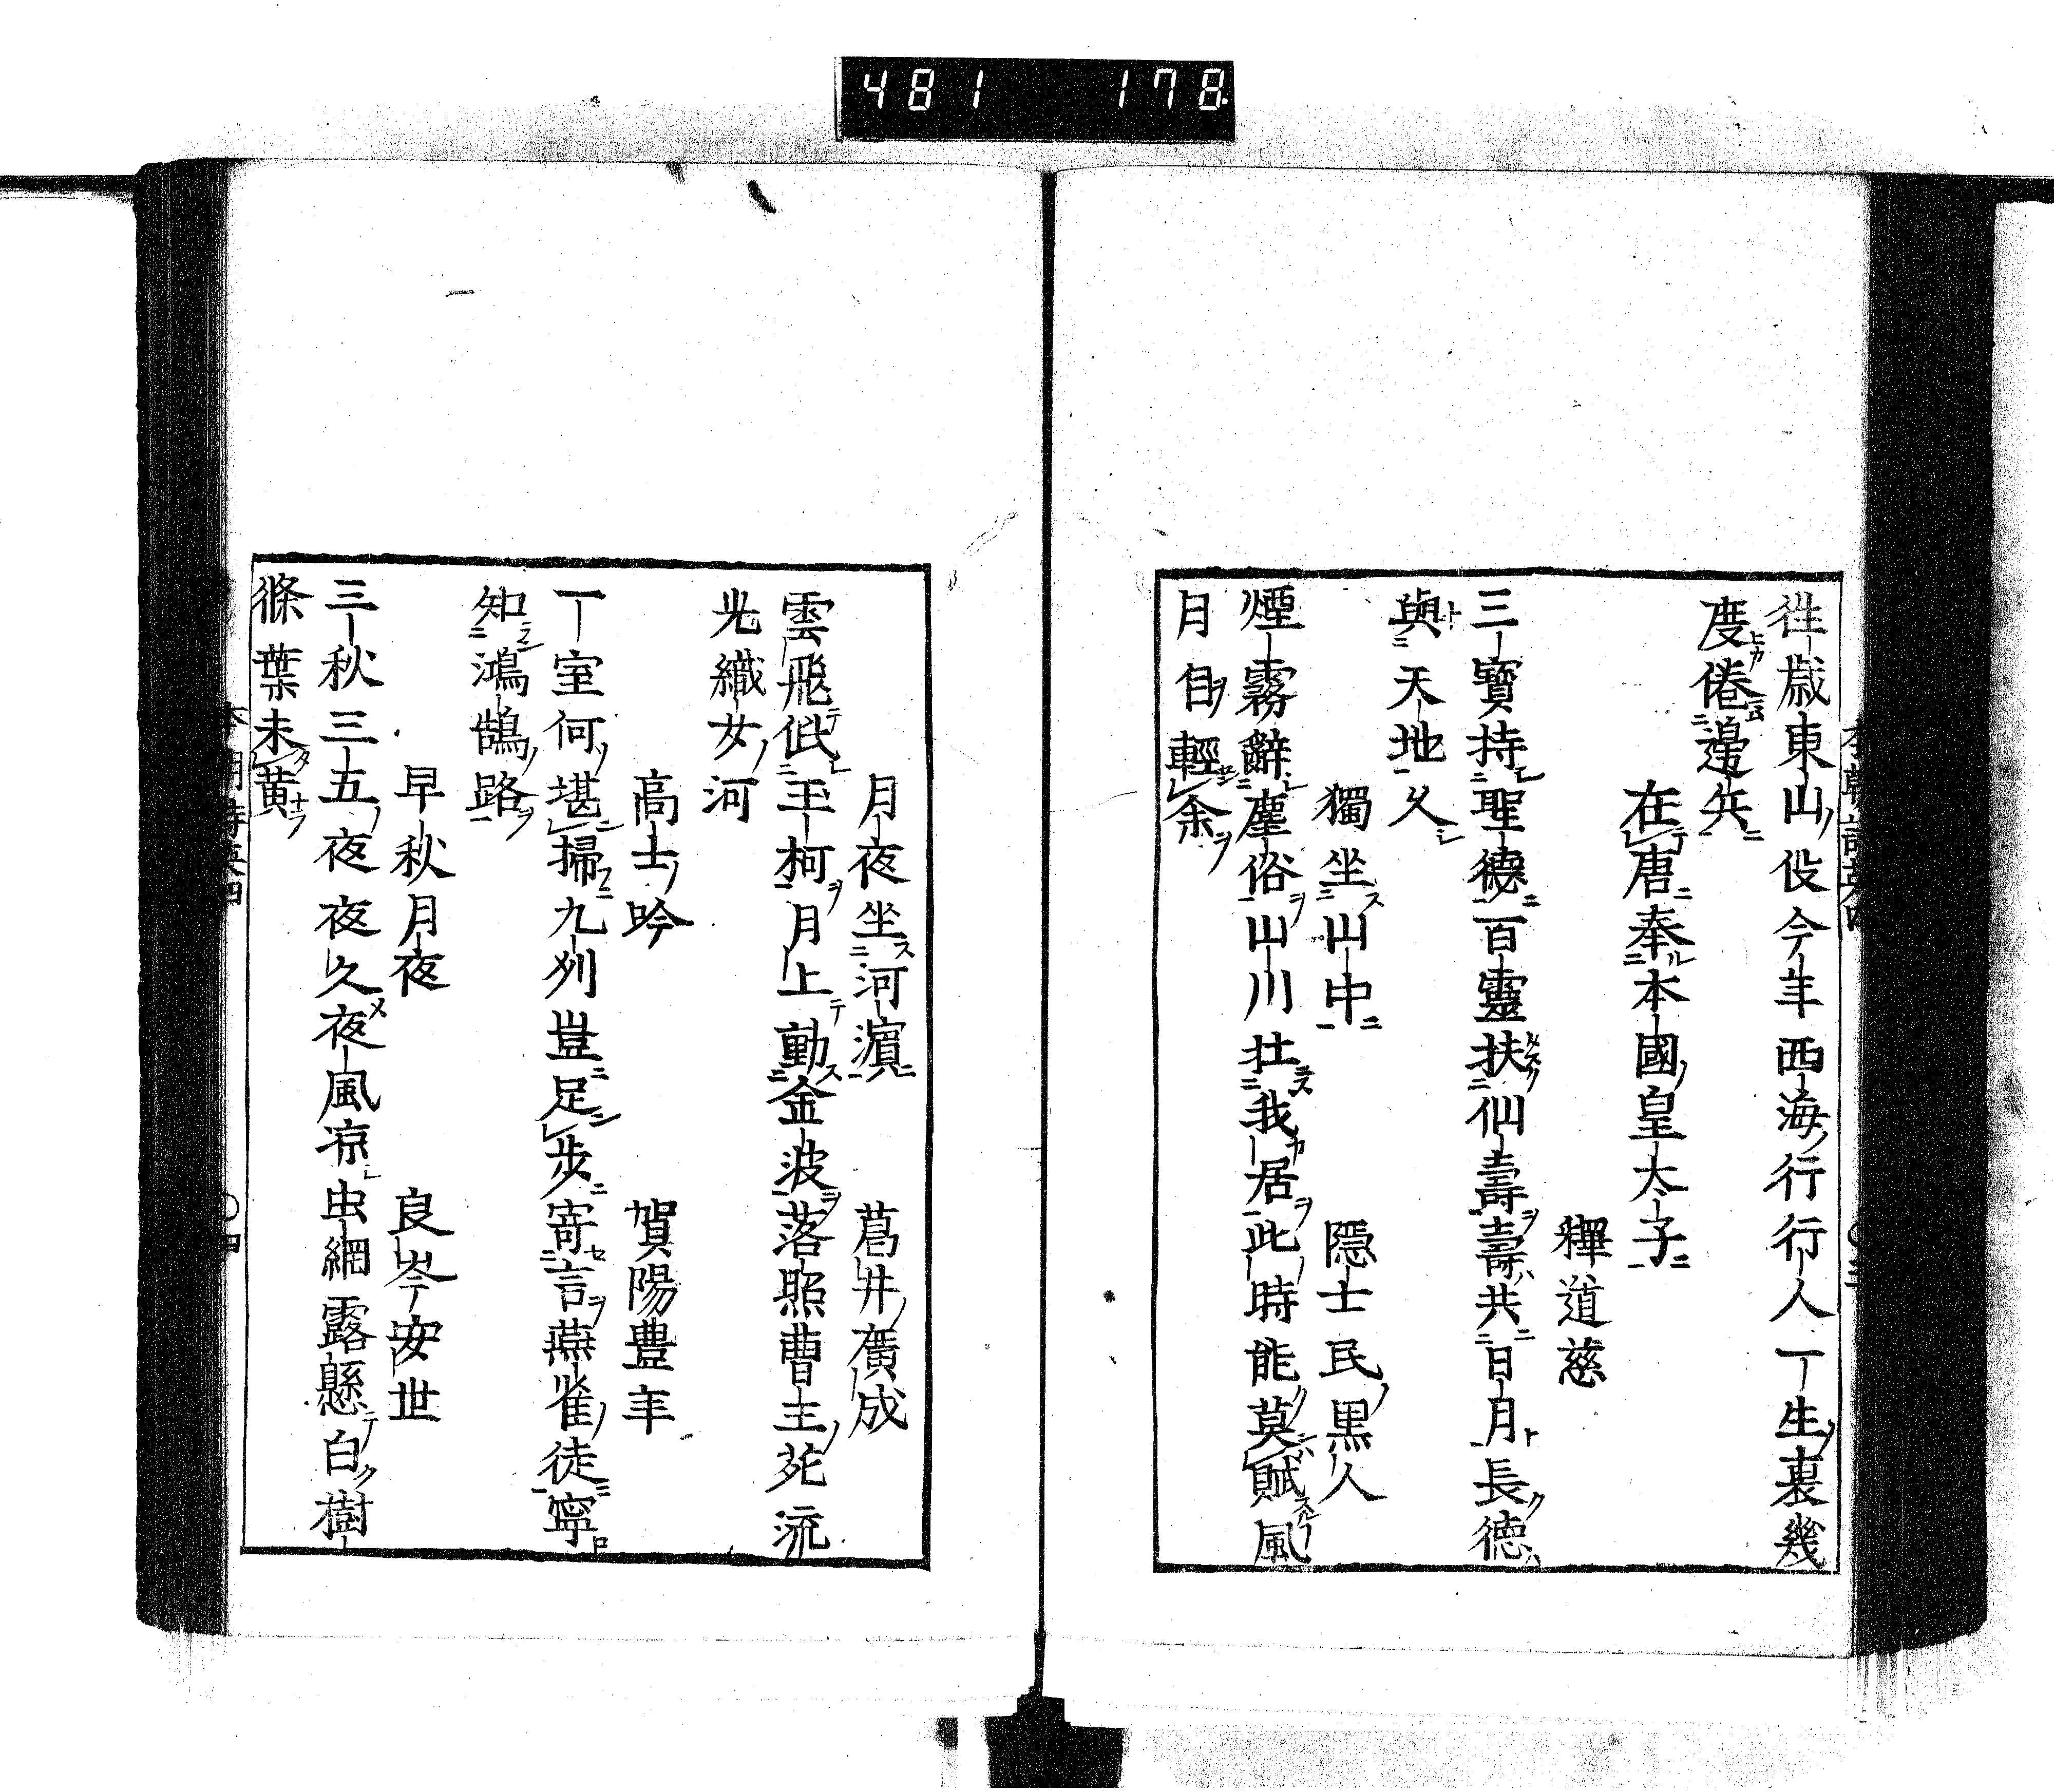 481 178
徃歲東山役今年西海行行人一生裏幾
度倦邊兵
在唐奉本國皇太子
釋道慈
三寶持聖德百靈扶仙壽壽共日月長德
與天地久
獨坐山中 隱士民黒人
煙霧辭塵俗山川壮我居此時能莫賦風
月自輕余
月夜坐河濵 葛井廣成
雲飛低玉柯月上動金波落照曹王苑流
光織女河
高士吟 賀陽豊年
一室何堪掃九州豈足步寄言燕雀徒寧
知鴻鵠路
早秋月夜 良岑安世
三秋三五夜夜久夜風凉虫網露懸白樹
條葉未黄